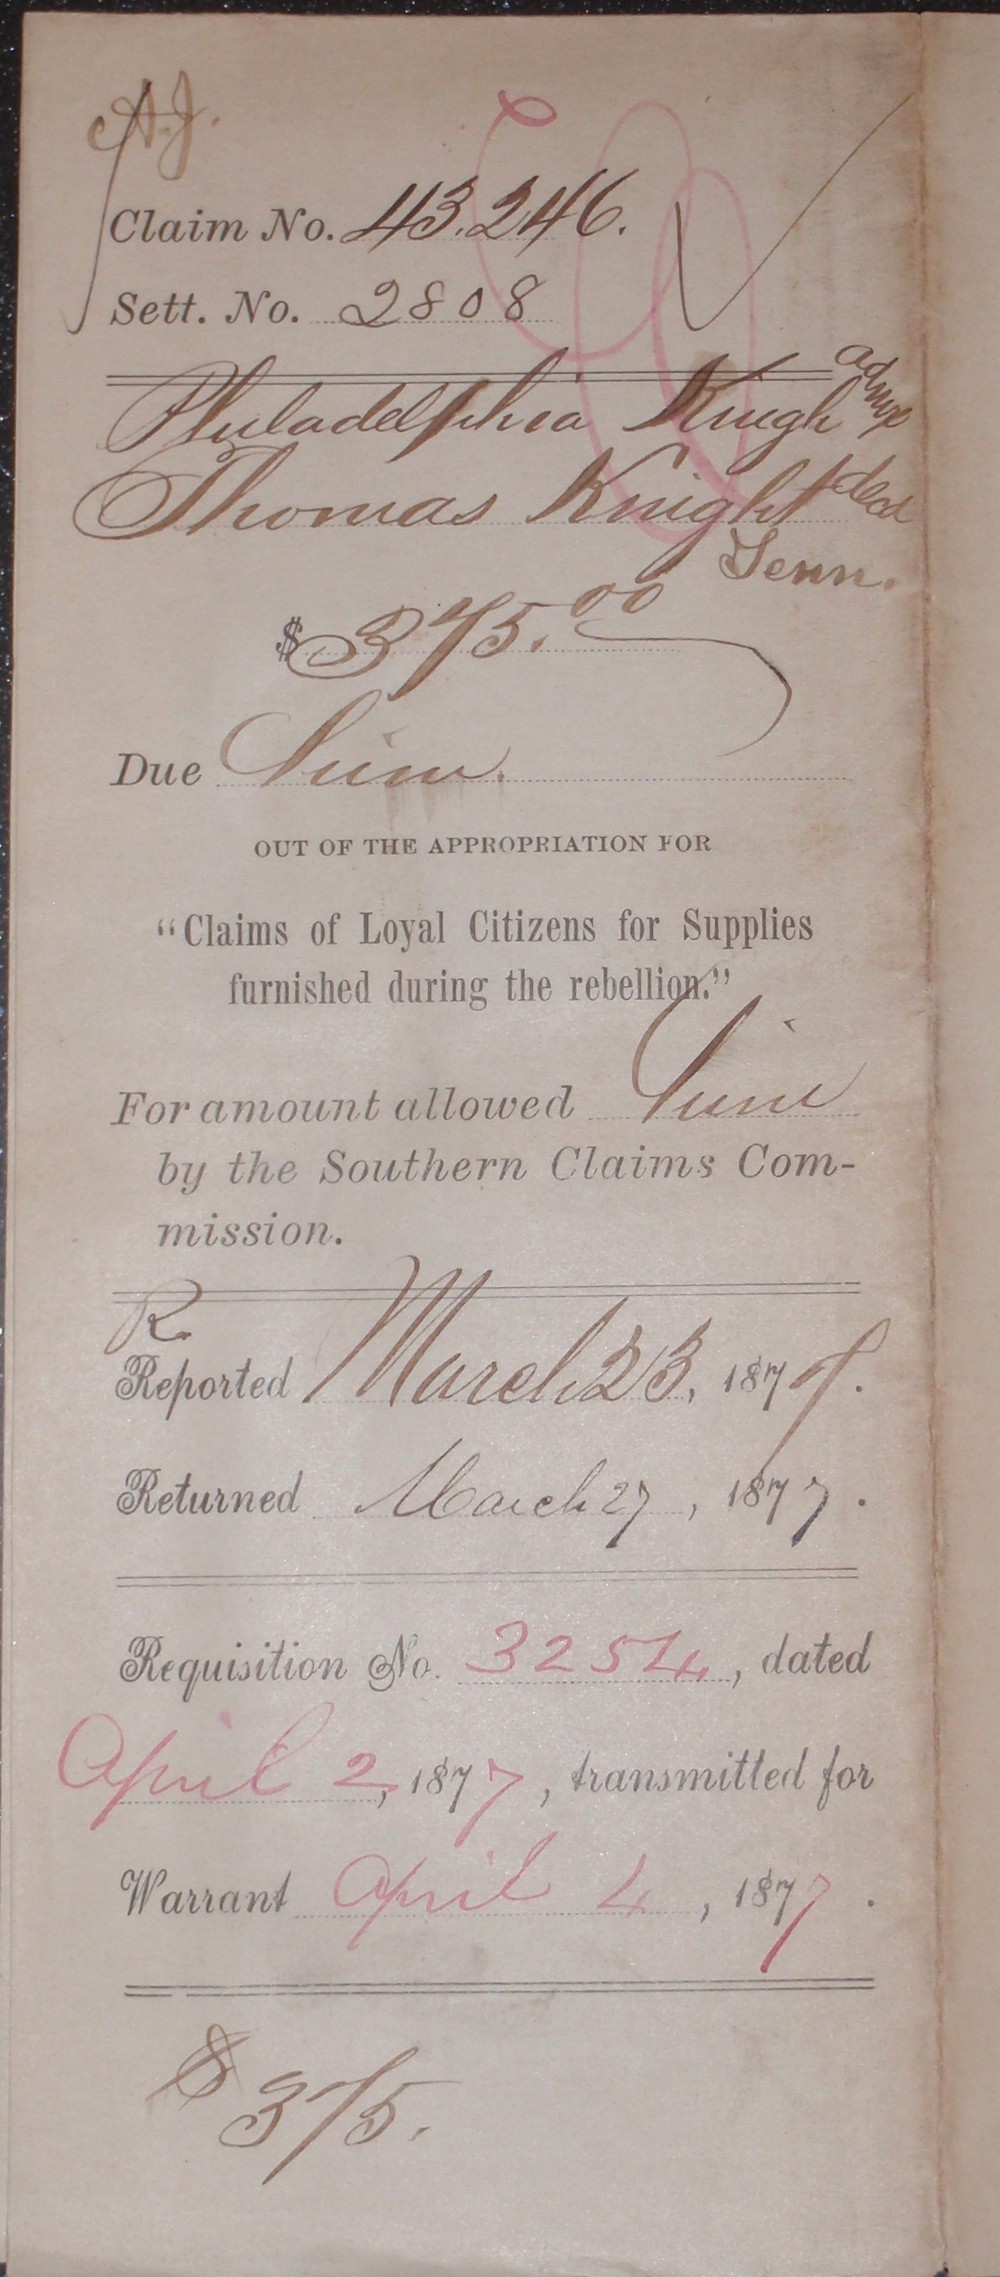 A.J.
Claim No. 43.246.
Sett. No. 2808
Philadelphia Knigh admx
Thomas Knight decd
Tenn.
$ 375.00
Due
OUT OF THE APPROPRIATION FOR
“Claims of Loyal Citizens for Supplies
furnished during the rebellion.”
For amount allowed
by the Southern Claims Com-
mission.
R.
Reported March 23, 1877.
Returned March 27, 1877.
Requisition No. 3254, dated
April 2, 1877, transmitted for
Warrant April 4, 1877.
$375.